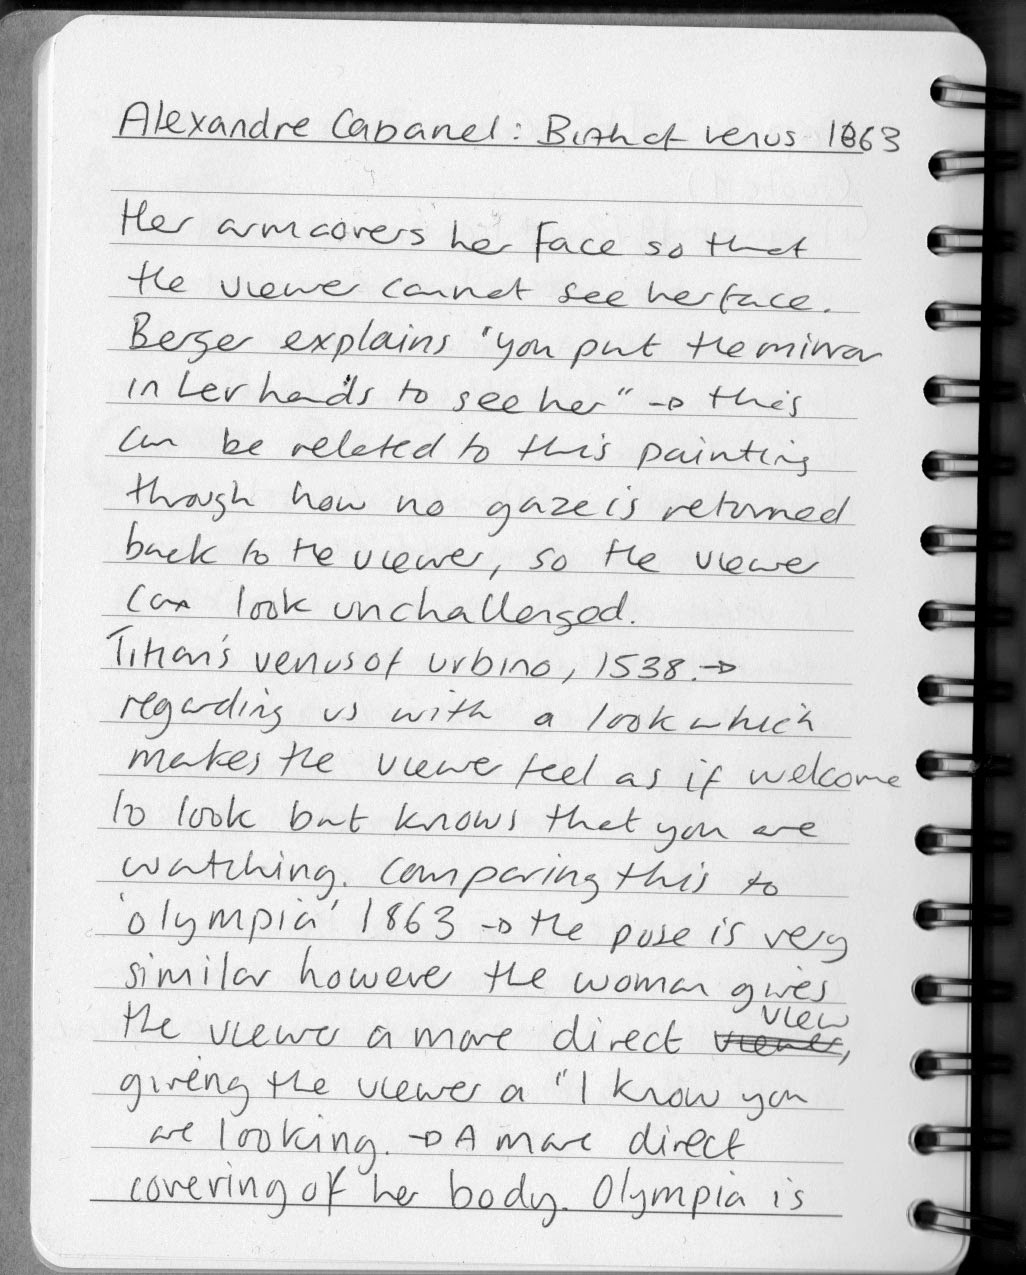 Alexandre Cabanel: Birth of Venus 1863
Her arm covers her face so that
the viewer cannot see her face.
Berger explains "you put the mirror
in her hands to see her" → this
can be related to this painting
though how no gaze is returned
back to the viewer, so the viewer
can look unchallenged.
Titian's venus of urbino, 1538. →
regarding us with a look which
makes the viewer feel as if welcome
to look but knows that you are
watching. Comparing this to
'olympia' 1863 → the pose is very
similar however the woman gives
view
the viewer a more direct ~~viewer~~,
giving the viewer a "I know you
are looking. → A more direct
covering of her body. Olympia is